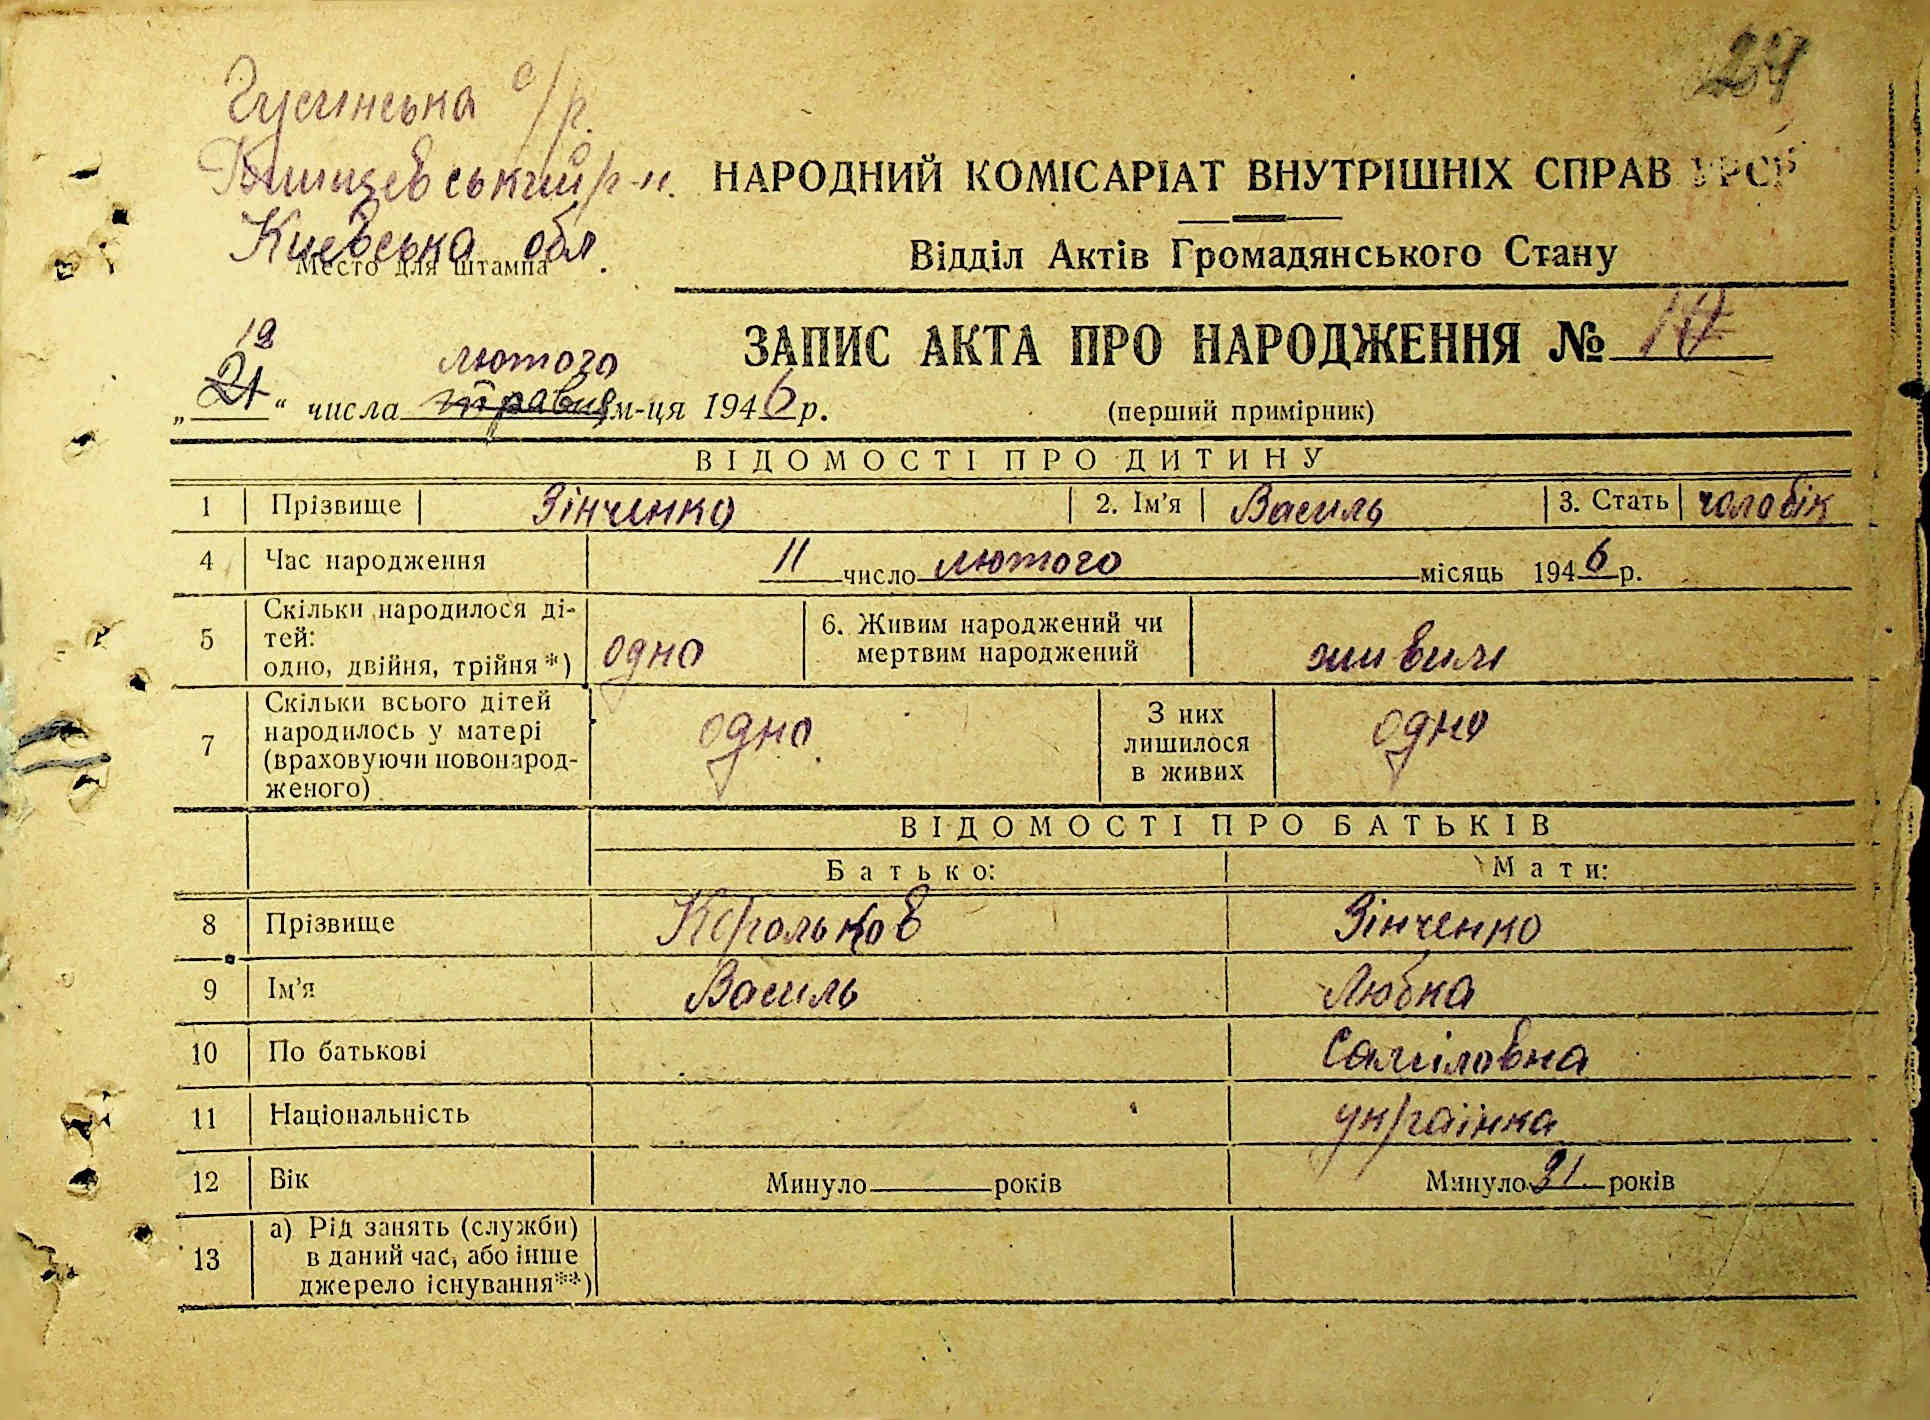 24
Гусинська с/р.
р-н.
Київська обл.
Место для штампа
НАРОДНИЙ КОМІСАРІАТ ВНУТРІШНІХ СПРАВ УРСР
Відділ Актів Громадянського Стану
ЗАПИС АКТА ПРО НАРОДЖЕННЯ №
(перший примірник)
19 лютого
„21“ числа травня м-ця 1946 р.
ВІДОМОСТІ ПРО ДИТИНУ
1 Прізвище Зінченко 2. Ім'я Василь 3. Стать чоловік
4 Час народження 11 число лютого місяць 1946 р.
5 Скільки народилося ді-
тей:
одно, двійня, трійня*) одно
6. Живим народжений чи
мертвим народжений живим
7 Скільки всього дітей
народилось у матері
(враховуючи новонарод-
женого) одно
З них
лишилося
в живих одно
ВІДОМОСТІ ПРО БАТЬКІВ
Батько: Мати:
8 Прізвище Корольков Зінченко
9 Ім'я Василь Любка
10 По батькові Саміловна
11 Національність українка
12 Вік Минуло років Минуло 31 років
13 а) Рід занять (служби)
в даний час, або інше
джерело існування**)